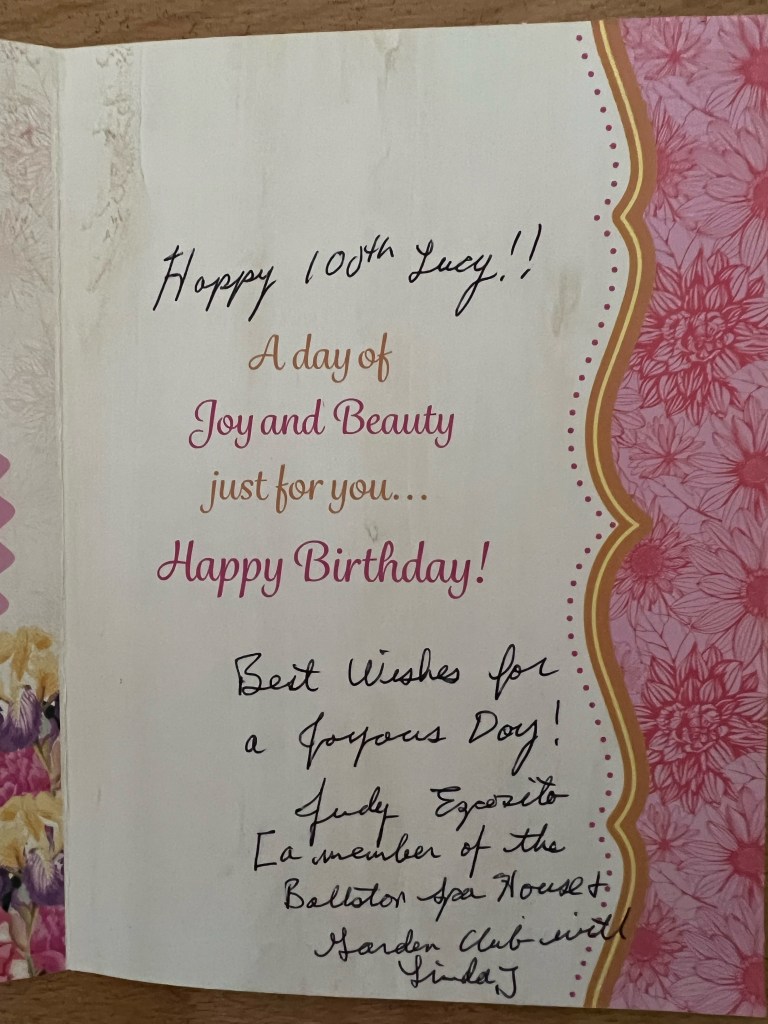 Happy 100th Lucy!!
A day of
Joy and Beauty
just for you...
Happy Birthday!
Best Wishes for
a Joyous Day!
Judy Esposito
[a member of the
Ballston Spa House &
Garden Club with
Linda]